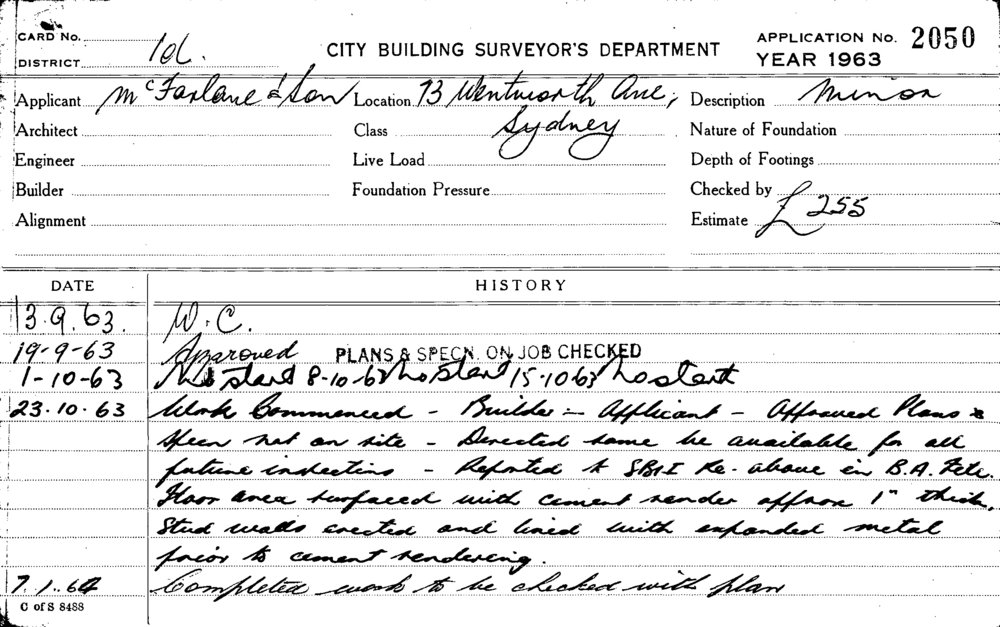 CARD No.
DISTRICT 1d.
CITY BUILDING SURVEYOR'S DEPARTMENT
APPLICATION No. 2050
YEAR 1963
Applicant McFarlane & Son Location 73 Wentworth Ave, Description Minor
Architect Class Sydney Nature of Foundation
Engineer Live Load Depth of Footings
Builder Foundation Pressure Checked by
Alignment Estimate £255
DATE HISTORY
13.9.63. W.C.
19-9-63 Approved PLANS & SPECN. ON JOB CHECKED
1-10-63 No start 8-10-63 No Start 15-10-63 No start
23.10.63 Work Commenced - Builder - Applicant - Approved Plans &
Specn not on site - Directed same be available for all
future inspections - Reported to SBI Re. above in B.A. File.
Floor area surfaced with cement render approx 1" thick.
Stud walls erected and lined with expanded metal
prior to cement rendering.
7.1.64 Completed work to be checked with plan
C of S 8488